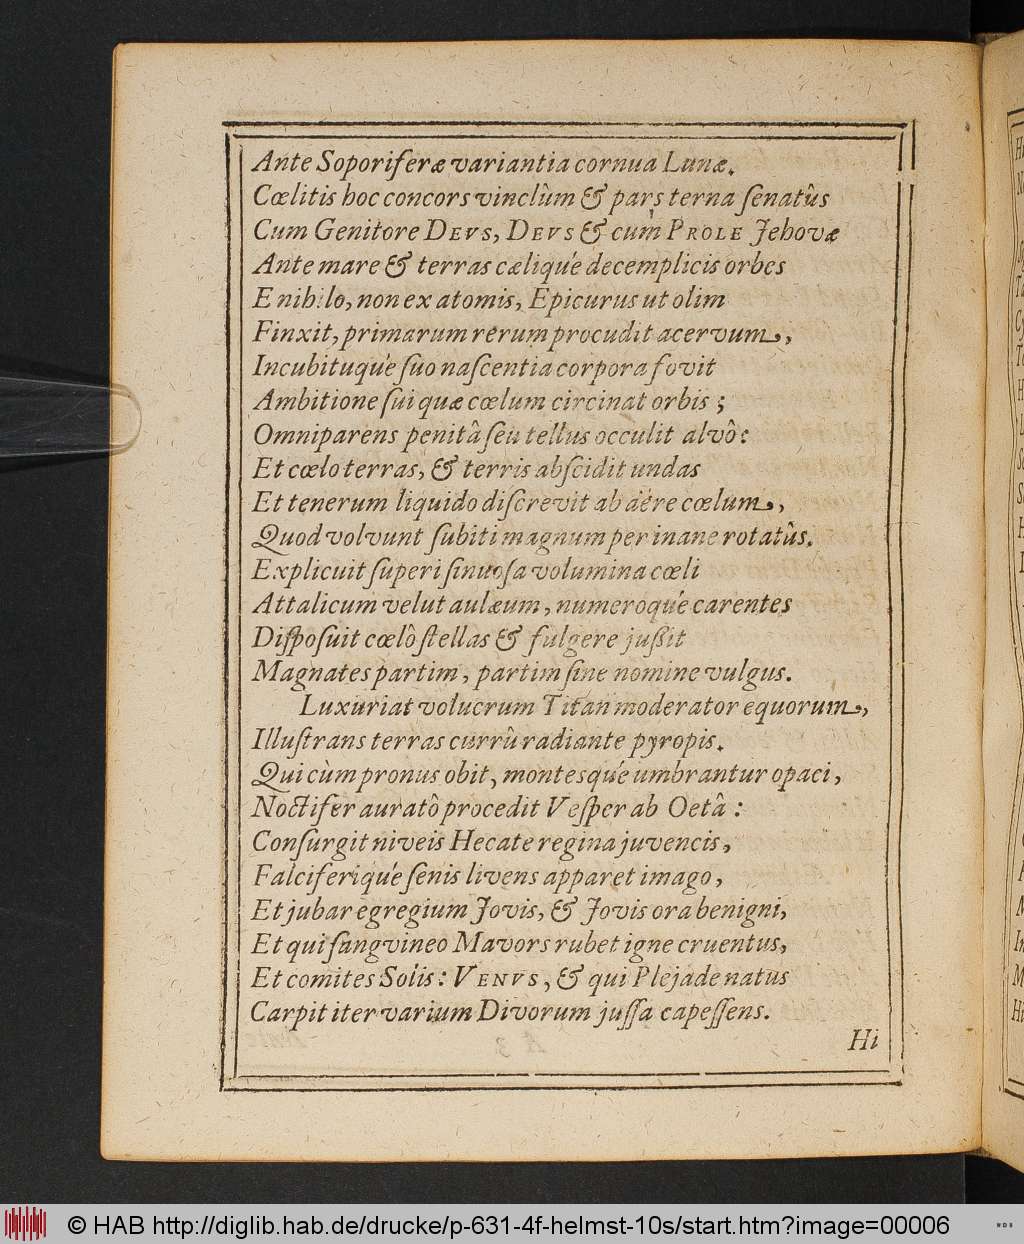 Ante Soporiferæ variantia cornua Lunæ.
Cœlitis hoc concors vinclûm & pars terna ſenatûs
Cum Genitore DEVS, DEVS & cum PROLE Jehovæ
Ante mare & terras cæliq́ue decemplicis orbes
E nihilo, non ex atomis, Epicurus ut olim
Finxit, primarum rerum procudit acervum,
Incubituq́ue ſuo naſcentia corpora fovit
Ambitione ſui quæ cœlum circinat orbis;
Omniparens penitâ ſeu tellus occulit alvô:
Et cœlo terras, & terris abſcidit undas
Et tenerum liquido diſcrevit ab aëre cœlum,
Quod volvunt ſubiti magnum per inane rotatûs.
Explicuit ſuperi ſinuoſa volumina cœli
Attalicum velut aulæum, numeroq́ue carentes
Diſpoſuit cœlô ſtellas & fulgere jußit
Magnates partim, partim ſine nomine vulgus.
Luxuriat volucrum Titan moderator equorum,
Illuſtrans terras currû radiante pyropis.
Qui cùm pronus obit, montesq́ue umbrantur opaci,
Noctifer auratô procedit Veſper ab Oetâ:
Conſurgit niveis Hecate regina juvencis,
Falciferiq́ue ſenis livens apparet imago,
Et jubar egregium Jovis, & Jovis ora benigni,
Et qui ſangvineo Mavors rubet igne cruentus,
Et comites Solis: VENVS, & qui Plejade natus
Carpit iter varium Divorum juſſa capeſſens.
Hi
© HAB http://diglib.hab.de/drucke/p-631-4f-helmst-10s/start.htm?image=00006